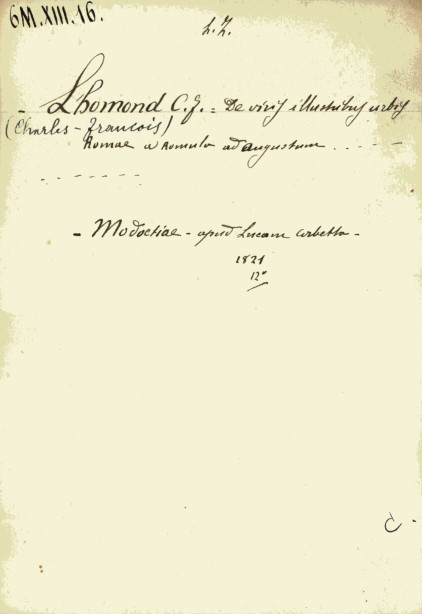 6M.XIII.16.
L.Z.
- Lhomond C.F. = De viris illustribus urbis
(Charles-François)
Romae a Romulo ad augustum - - - - -
- - - - - - - -
- Modoetiae - apud Lucam Corbetta -
1821
12°
C -